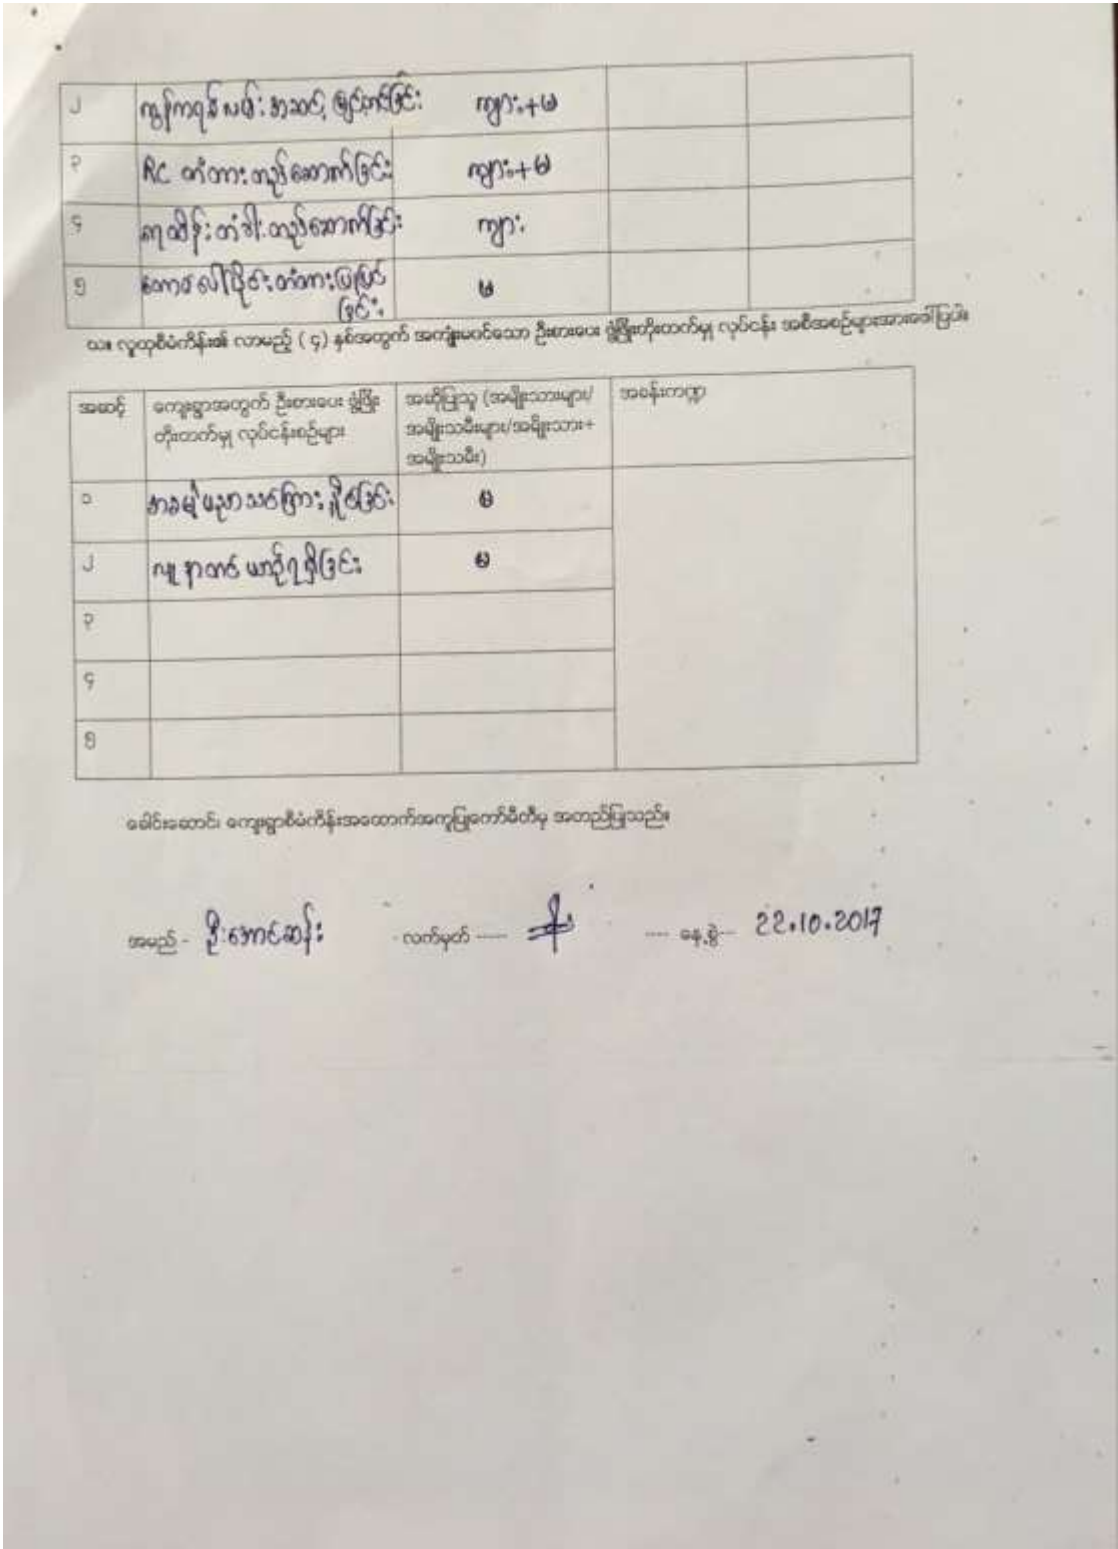 ၂ ကွန်ကရစ်လမ်းအဆင့်မြှင့်တင်ခြင်း ကျား+မ
၃ RC တံတားတည်ဆောက်ခြင်း ကျား+မ
၄ ရေထိန်းတံခါးတည်ဆောက်ခြင်း ကျား
၅ တံတားပြုပြင်
ခြင်း မ
ဃ။ လူထုစီမံကိန်း၏ လာမည့် ( ၄ ) နှစ်အတွက် အကျုံးမဝင်သော ဦးစားပေး ဖွံ့ဖြိုးတိုးတက်မှု လုပ်ငန်း အစီအစဉ်များအားဖေါ်ပြပါ။
အဆင့် ကျေးရွာအတွက် ဦးစားပေး ဖွံ့ဖြိုး အဆိုပြုသူ (အမျိုးသားများ/ အခန်းကဏ္ဍ
တိုးတက်မှု လုပ်ငန်းစဉ်များ အမျိုးသမီးများ/အမျိုးသား+
အမျိုးသမီး)
၁ အခမဲ့ပညာသင်ကြားနိုင်ခြင်း မ
၂ လူနာတင်ယာဉ်ရရှိခြင်း မ
၃
၄
၅
ခေါင်းဆောင်၊ ကျေးရွာစီမံကိန်းအထောက်အကူပြုကော်မီတီမှ အတည်ပြုသည်။
အမည် - ဦးအောင်ဆန်း လက်မှတ် ----- ---- နေ့စွဲ-- 22.10.2017